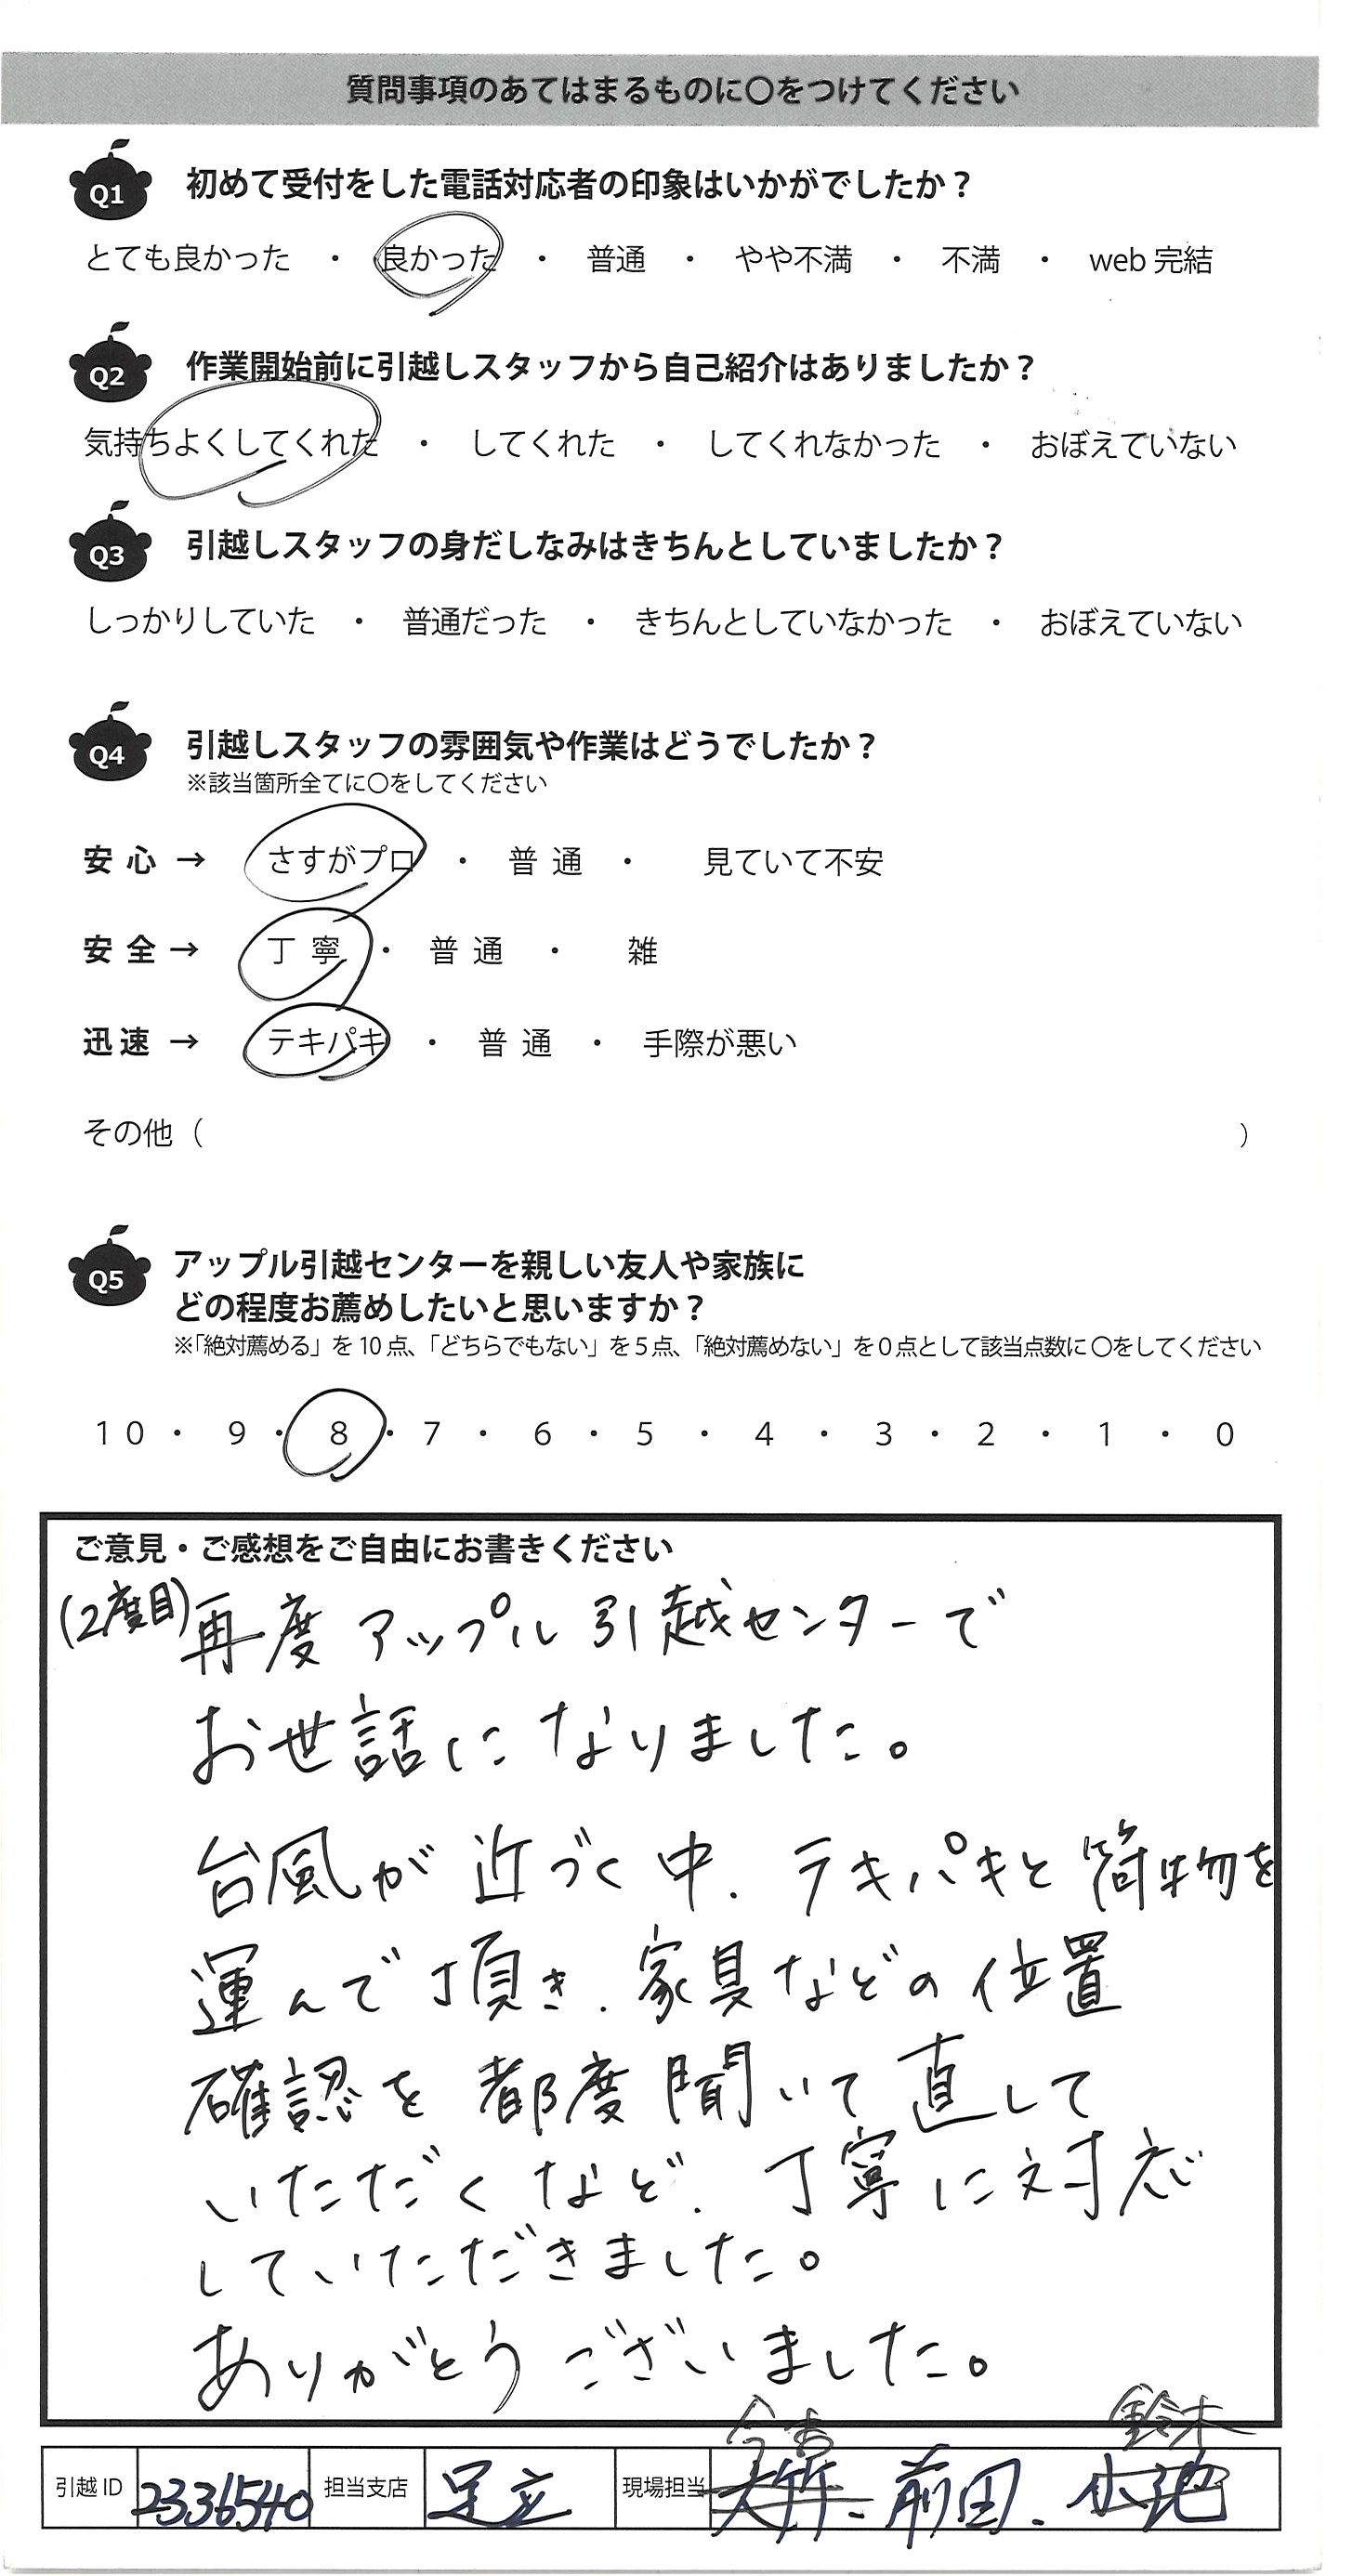 質問事項のあてはまるものに〇をつけてください
Q1 初めて受付をした電話対応者の印象はいかがでしたか？
とても良かった ・ 良かった ・ 普通 ・ やや不満 ・ 不満 ・ web 完結
Q2 作業開始前に引越しスタッフから自己紹介はありましたか？
気持ちよくしてくれた ・ してくれた ・ してくれなかった ・ おぼえていない
Q3 引越しスタッフの身だしなみはきちんとしていましたか？
しっかりしていた ・ 普通だった ・ きちんとしていなかった ・ おぼえていない
Q4 引越しスタッフの雰囲気や作業はどうでしたか？
※該当箇所全てに〇をしてください
安心 → さすがプロ ・ 普通 ・ 見ていて不安
安全 → 丁寧 ・ 普通 ・ 雑
迅速 → テキパキ ・ 普通 ・ 手際が悪い
その他（ ）
Q5 アップル引越センターを親しい友人や家族に
どの程度お薦めしたいと思いますか？
※「絶対薦める」を 10 点、「どちらでもない」を 5 点、「絶対薦めない」を 0 点として該当点数に 〇をしてください
10 ・ 9 ・ 8 ・ 7 ・ 6 ・ 5 ・ 4 ・ 3 ・ 2 ・ 1 ・ 0
ご意見・ご感想をご自由にお書きください
(2度目) 再度 アップル引越センターで
お世話になりました。
台風が近づく中、テキパキと荷物を
運んで頂き、家具などの位置
確認を都度聞いて直して
いただくなど、丁寧に対応
していただきました。
ありがとうございました。
鈴木
引越 ID 2336540 担当支店 足立 現場担当 前田、小池